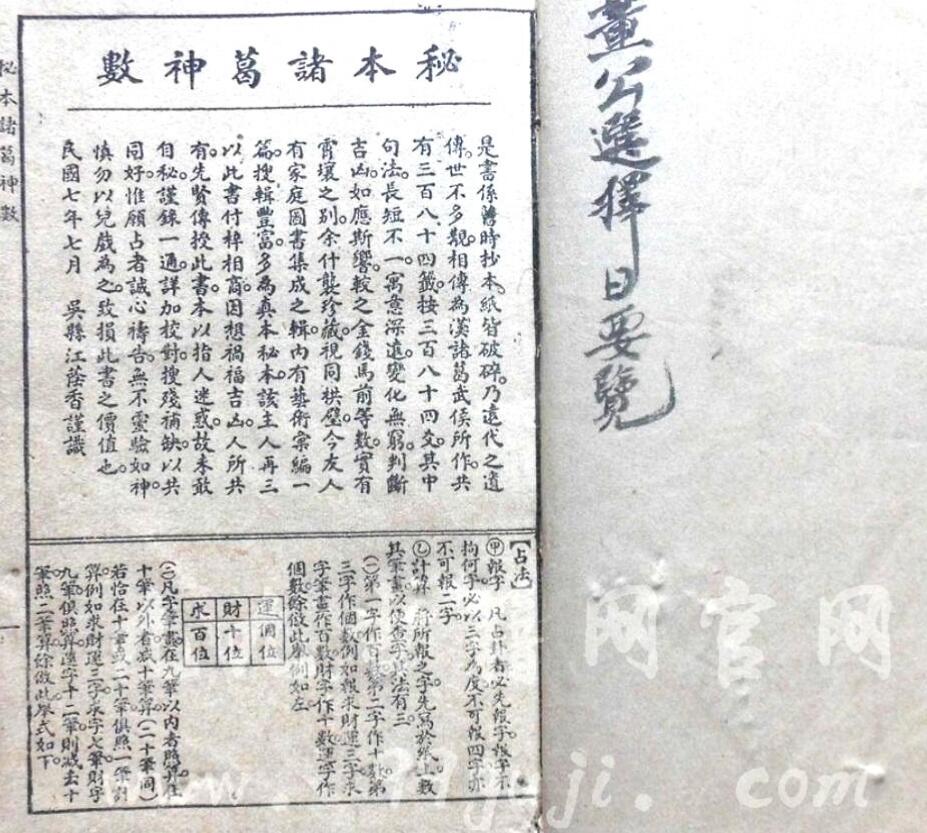 董公選擇日要覽
秘本諸葛神數
是書係舊時抄本紙皆破碎乃遠代之遺
傳世不多覯相傳為漢諸葛武侯所作共
有三百八十四籤按三百八十四爻其中
句法長短不一寓意深遠變化無窮判斷
吉凶如應斯響較之金錢馬前等數實有
霄壤之別余什襲珍藏視同拱璧今友人
有家庭圖書集成之輯內有藝術彙編一
篇搜輯豐富多為真本秘本該主人再三
以此書付梓相商因想禍福吉凶人所共
有先賢傳授此書本以指人迷惑故未敢
自秘謹錄一通詳加校對搜殘補缺以共
同好惟願占者誠心禱告無不靈驗如神
慎勿以兒戲為之致損此書之價值也
民國七年七月 吳縣江蔭香謹識
【占法】
㊙報字 凡占卦者必先報字報字不
拘何字必以三字為度不可報四字亦
不可報二字
㊁計算 將所報之字先寫於紙上數
其筆畫以便查字其法有三
(一)第一字作百數第二字作十數第
三字作個數例如報求財運三字求
字筆畫作百數財字作十數運字作
個數餘倣此舉例如左
運 個位
財 十位
求 百位
(二)凡字筆畫在九筆以內者照算在
十筆以外者減十筆算(二十筆同)
若恰在十筆或二十筆俱照一筆計
算例如求財運三字求字七筆財字
九筆俱照算運字十二筆則減去十
筆照二筆算餘倣此舉式如下
秘本諸葛神數
一
网官网
www.
ji.com